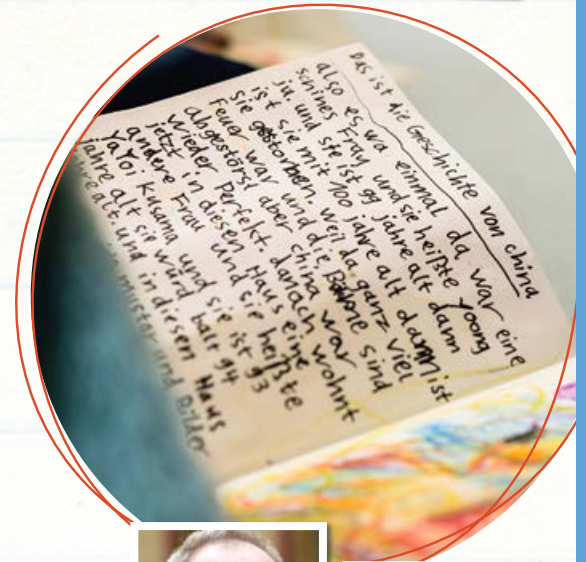 Das ist die Geschichte von china
also es wa einmal da war eine
schines Frau und sie heißte Yoong
ja. und sie ist 99 jahre alt dann
ist sie mit 100 jahre alt dann ist
sie gestorben. weil da ganz viel
Feuer war und die Bäume sind
abgestörst aber china war
wieder Perfekt. danach wohnt
jetzt in diesen Haus eine
andere Frau und sie heißte
YaYoi Kusama und sie ist 93
jahre alt sie würd balt 94
alt. und in diesen Haus
muster und Bilder